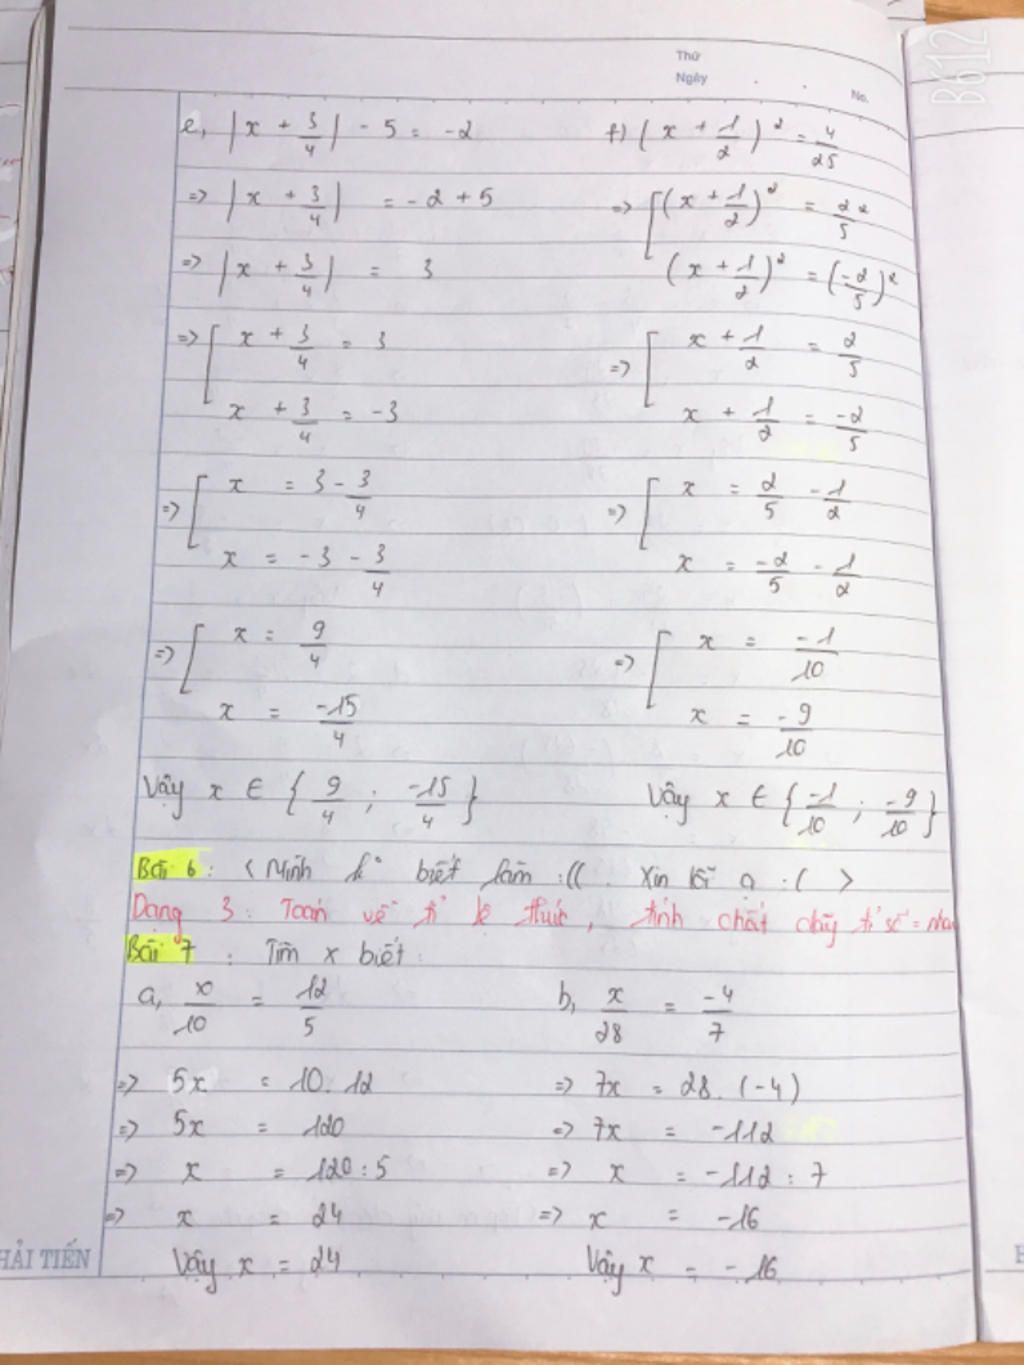 Thứ
Ngày
No.
B612
e, |x + 3/4| - 5 = -2
=> |x + 3/4| = -2 + 5
=> |x + 3/4| = 3
=> [ x + 3/4 = 3
x + 3/4 = -3
=> [ x = 3 - 3/4
x = -3 - 3/4
=> [ x = 9/4
x = -15/4
Vậy x ∈ { 9/4 ; -15/4 }
f) (x + 1/2)² = 4/25
=> [ (x + 1/2)² = 2²/5
(x + 1/2)² = (-2/5)²
=> [ x + 1/2 = 2/5
x + 1/2 = -2/5
=> [ x = 2/5 - 1/2
x = -2/5 - 1/2
=> [ x = -1/10
x = -9/10
Vậy x ∈ { -1/10 ; -9/10 }
Bài 6 : < Mình k° biết làm :(( . Xin lỗi ạ :( >
Dạng 3 : Toán về tỉ lệ thức , tính chất dãy tỉ số = nha
Bài 7 : Tìm x biết :
a, x/10 = 12/5
=> 5x = 10 . 12
=> 5x = 120
=> x = 120 : 5
=> x = 24
Vậy x = 24
b, x/28 = -4/7
=> 7x = 28 . (-4)
=> 7x = -112
=> x = -112 : 7
=> x = -16
Vậy x = -16
HẢI TIẾN